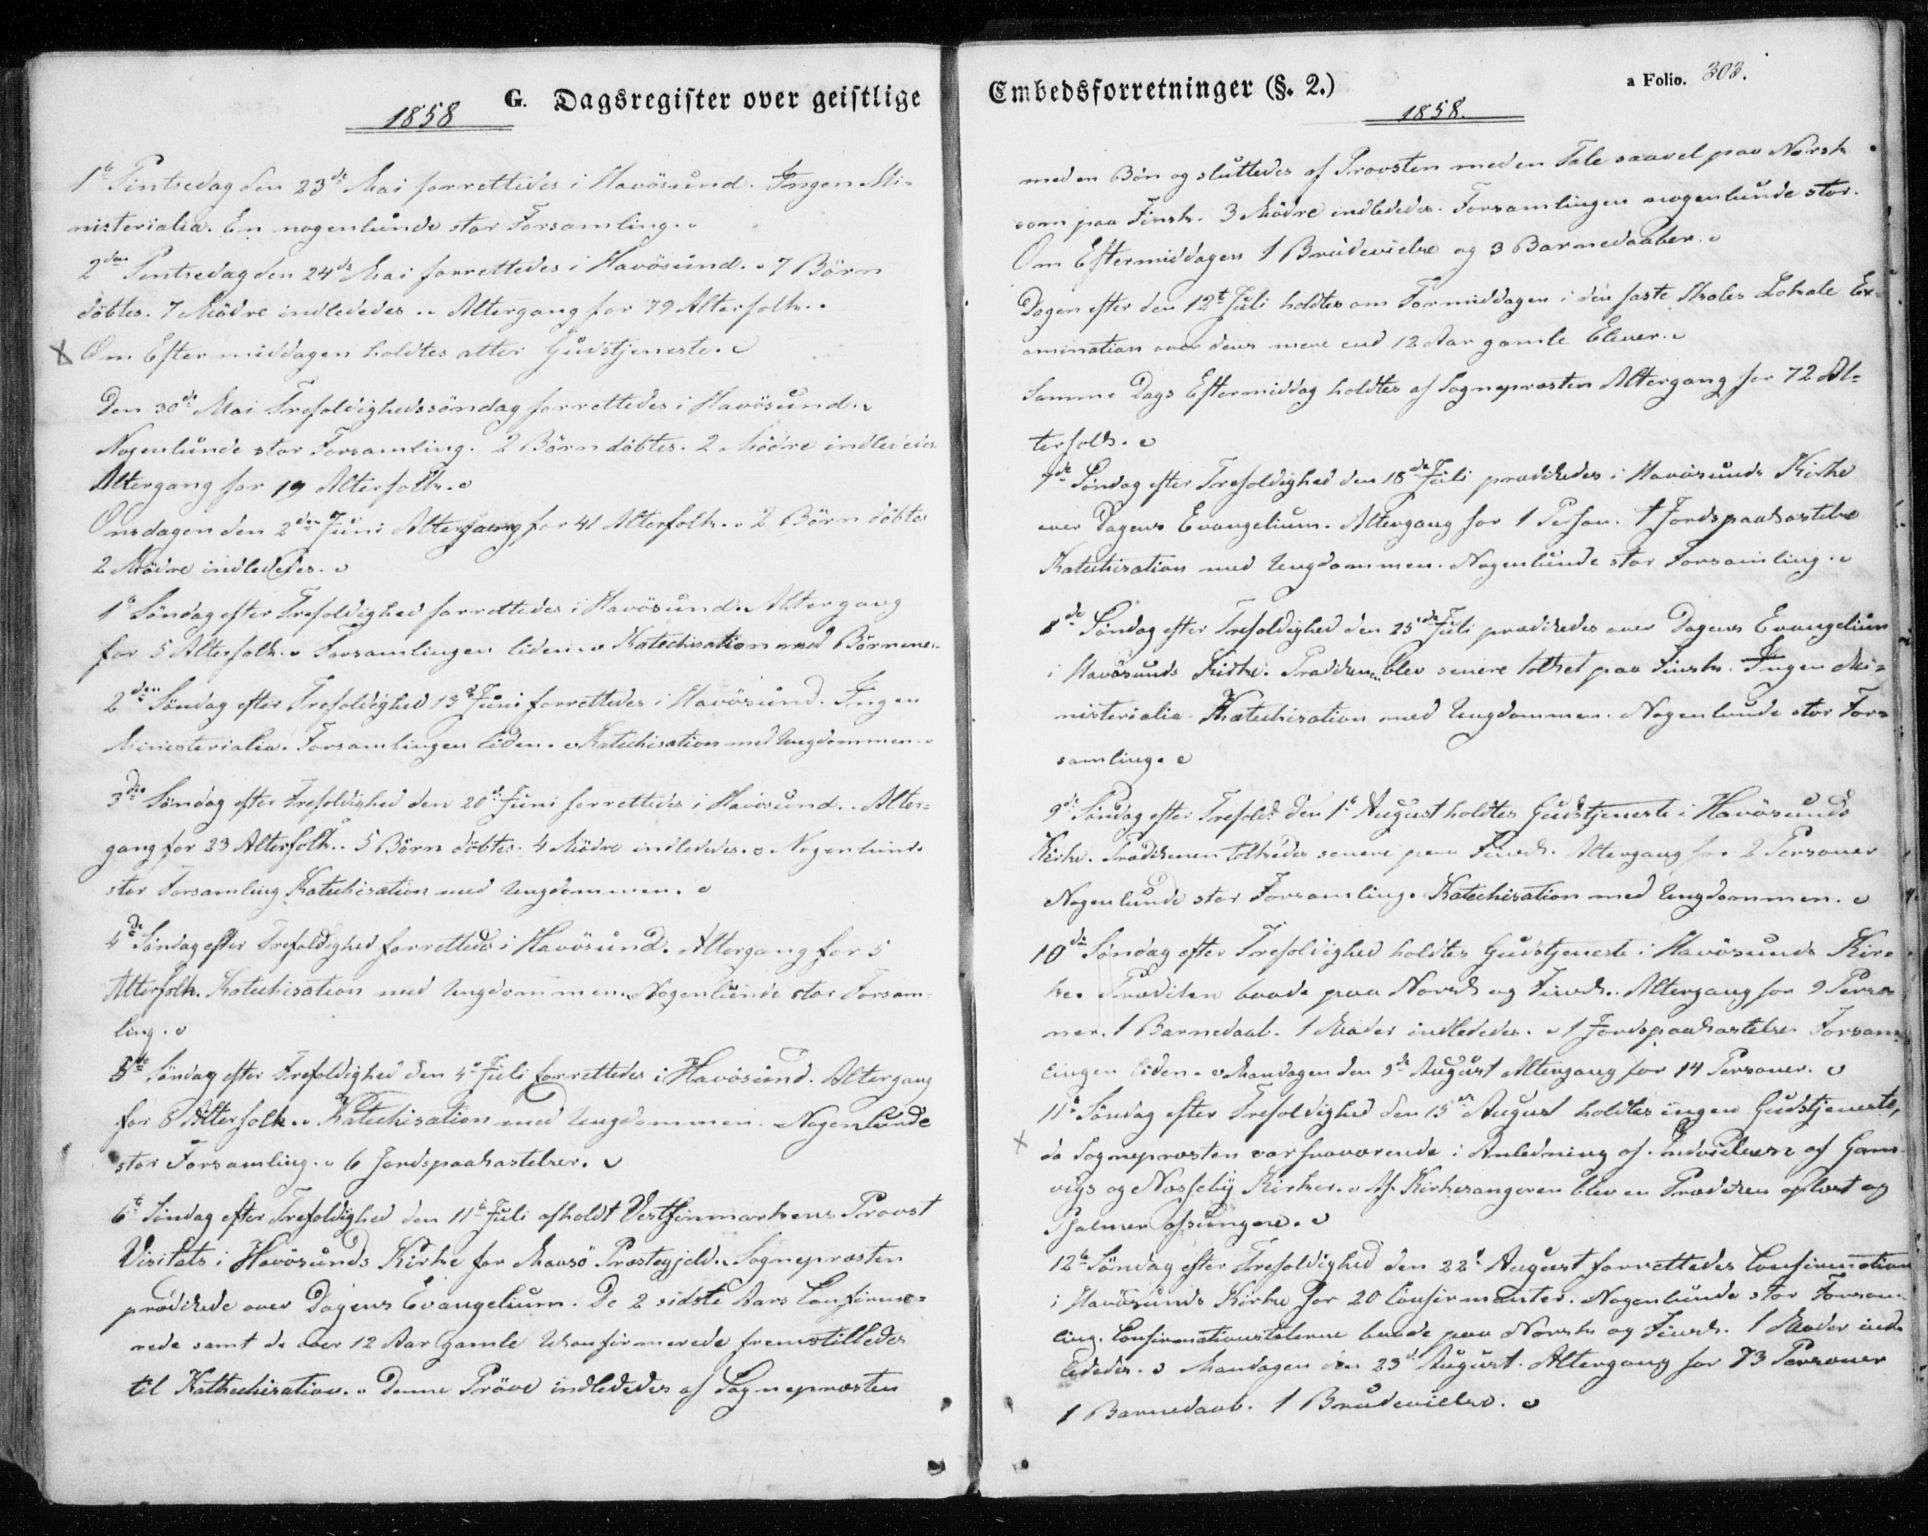 G. Dagsregister over geistlige
1858
1ste Pintsedag den 23de Mai forrettedes i Havösund. Ingen Mi-
nisterialia. En nogenlunde stor Forsamling.
2den Pintsedag den 24de Mai forrettedes i Havösund. 7 Börn
döbtes. 7 Mödre indlededes. Altergang for 79 Alterfolk.
Om Eftermiddagen holdtes atter Gudstjeneste.
Den 30de Mai Trefoldighedssöndag forrettedes i Havösund.
Nogenlunde stor Forsamling. 2 Börn döbtes. 2 Mödre indlededes
Altergang for 19 Alterfolk.
Onsdagen den 2den Juni Altergang for 41 Alterfolk. 2 Börn döbtes
2 Mödre indlededes.
1ste Söndag efter Trefoldighed forrettedes i Havösund. Altergang
for 5 Alterfolk. Forsamlingen liden. Katechisation med Börnene.
2den Söndag efter Trefoldighed 13de Juni forrettedes i Havösund. Ingen
Ministerialia. Forsamlingen liden. Katechisation med Ungdommen.
3die Söndag efter Trefoldighed den 20de Juni forrettedes i Havösund. Alter-
gang for 23 Alterfolk. 5 Börn döbtes. 4 Mödre indlededes. Nogenlunde
stor Forsamling Katechisation med Ungdommen.
4de Söndag efter Trefoldighed forrettedes i Havösund. Altergang for 5
Alterfolk. Katechisation med Ungdommen. Nogenlunde stor Forsam-
ling.
5te Söndag efter Trefoldighed den 4de Juli forrettedes i Havösund. Altergang
for 8 Alterfolk. Katechisation med Ungdommen. Nogenlunde
stor Forsamling. 6 Jordspaakastelser.
6te Söndag efter Trefoldighed den 11te Juli afholdt Vestfinmarkens Provst
Visitats i Havösunds Kirke for Maasö Præstegjeld. Sognepræsten
prædikede over Dagens Evangelium. De 2 sidste Aars Confirme-
rede samt de over 12 Aar gamle Ukonfirmerede fremstilledes
til Kathechisation. Denne Pröve indlededes af Sognepræsten
Embedsforretninger (§. 2.)
a Folio. 303.
1858.
med en Bön og sluttedes af Provsten med en Tale saavel paa Norsk
som paa Finsk. 3 Mödre indlededes. Forsamlingen nogenlunde stor.
Om Eftermiddagen 1 Brudevielse og 3 Barnedaaber.
Dagen efter den 12te Juli holdtes om Formiddagen i den faste Skoles Lokale Ex-
amination over dens mere end 12 Aar gamle Elever.
Samme Dags Eftermiddag holdtes af Sognepræsten Altergang for 72 Al-
terfolk.
7de Söndag efter Trefoldighed den 18de Juli prædikedes i Havösunds Kirke
over Dagens Evangelium. Altergang for 1 Person. 1 Jordspaakastelse
Katechisation med Ungdommen. Nogenlunde stor Forsamling.
8de Söndag efter Trefoldighed den 25de Juli prædikedes over Dagens Evangelium
i Havösunds Kirke. Prædiken blev senere tolket paa Finsk. Ingen Mi-
nisterialia. Katechisation med Ungdommen. Nogenlunde stor For-
samling.
9de Söndag efter Trefold. den 1ste August holdtes Gudstjeneste i Havösunds
Kirke. Prædikenen tolkedes senere paa Finsk. Altergang for 2 Personer
Nogenlunde stor Forsamling. Katechisation med Ungdommen.
10de Söndag efter Trefoldighed holdtes Gudstjeneste i Havösunds Kir-
ke. Prædiken baade paa Norsk og Finsk. Altergang for 9 Perso-
ner. 1 Barnedaab. 1 Moder indlededes. 1 Jordspaakastelse Forsam-
lingen liden. Mandagen den 9de August Altergang for 14 Personer.
11te Söndag efter Trefoldighed den 15de August holdtes ingen Gudstjeneste,
da Sognepræsten var fraværende i Anledning af Indvielsen af Gam-
vigs og Næsseby Kirker. Af Kirkesangeren blev en Prædiken oplæst og
Psalmer afsungne.
12te Söndag efter Trefoldighed den 22de August forrettedes Confirmation
i Havösunds Kirke for 20 Confirmanter. Nogenlunde stor Forsam-
ling. Confirmationstalerne baade paa Norsk og Finsk. 1 Moder ind-
lededes. Mandagen den 23de August. Altergang for 73 Personer
1 Barnedaab. 1 Brudevielse.